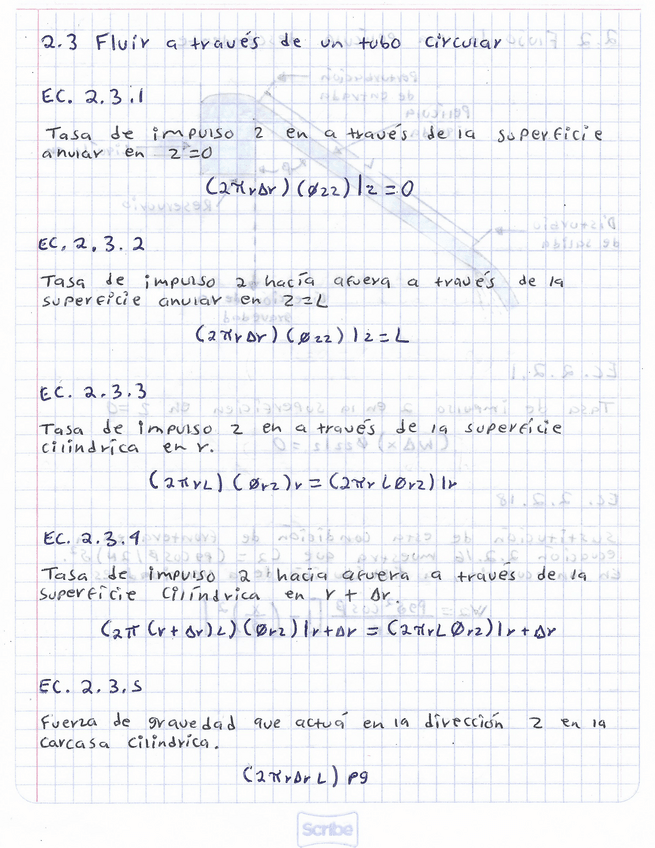 2.3 Fluir a través de un tubo circular
EC. 2.3.1
Tasa de impulso z en a través de la superficie
anular en z=0
(2πrΔr) (Øzz) |z = 0
EC. 2.3.2
Tasa de impulso z hacía afuera a través de la
superficie anular en z=L
(2πrΔr) (Øzz) |z = L
EC. 2.3.3
Tasa de impulso z en a través de la superficie
cilíndrica en r.
(2πrL) (Ørz)r = (2πrLØrz) |r
EC. 2.3.4
Tasa de impulso z hacia afuera a través de la
superficie cilíndrica en r + Δr.
(2π (r + Δr)L) (Ørz) |r+Δr = (2πrLØrz)|r + Δr
EC. 2.3.5
Fuerza de gravedad que actuá en la dirección z en la
carcasa cilindrica.
(2πrΔrL) ρg
Scribe